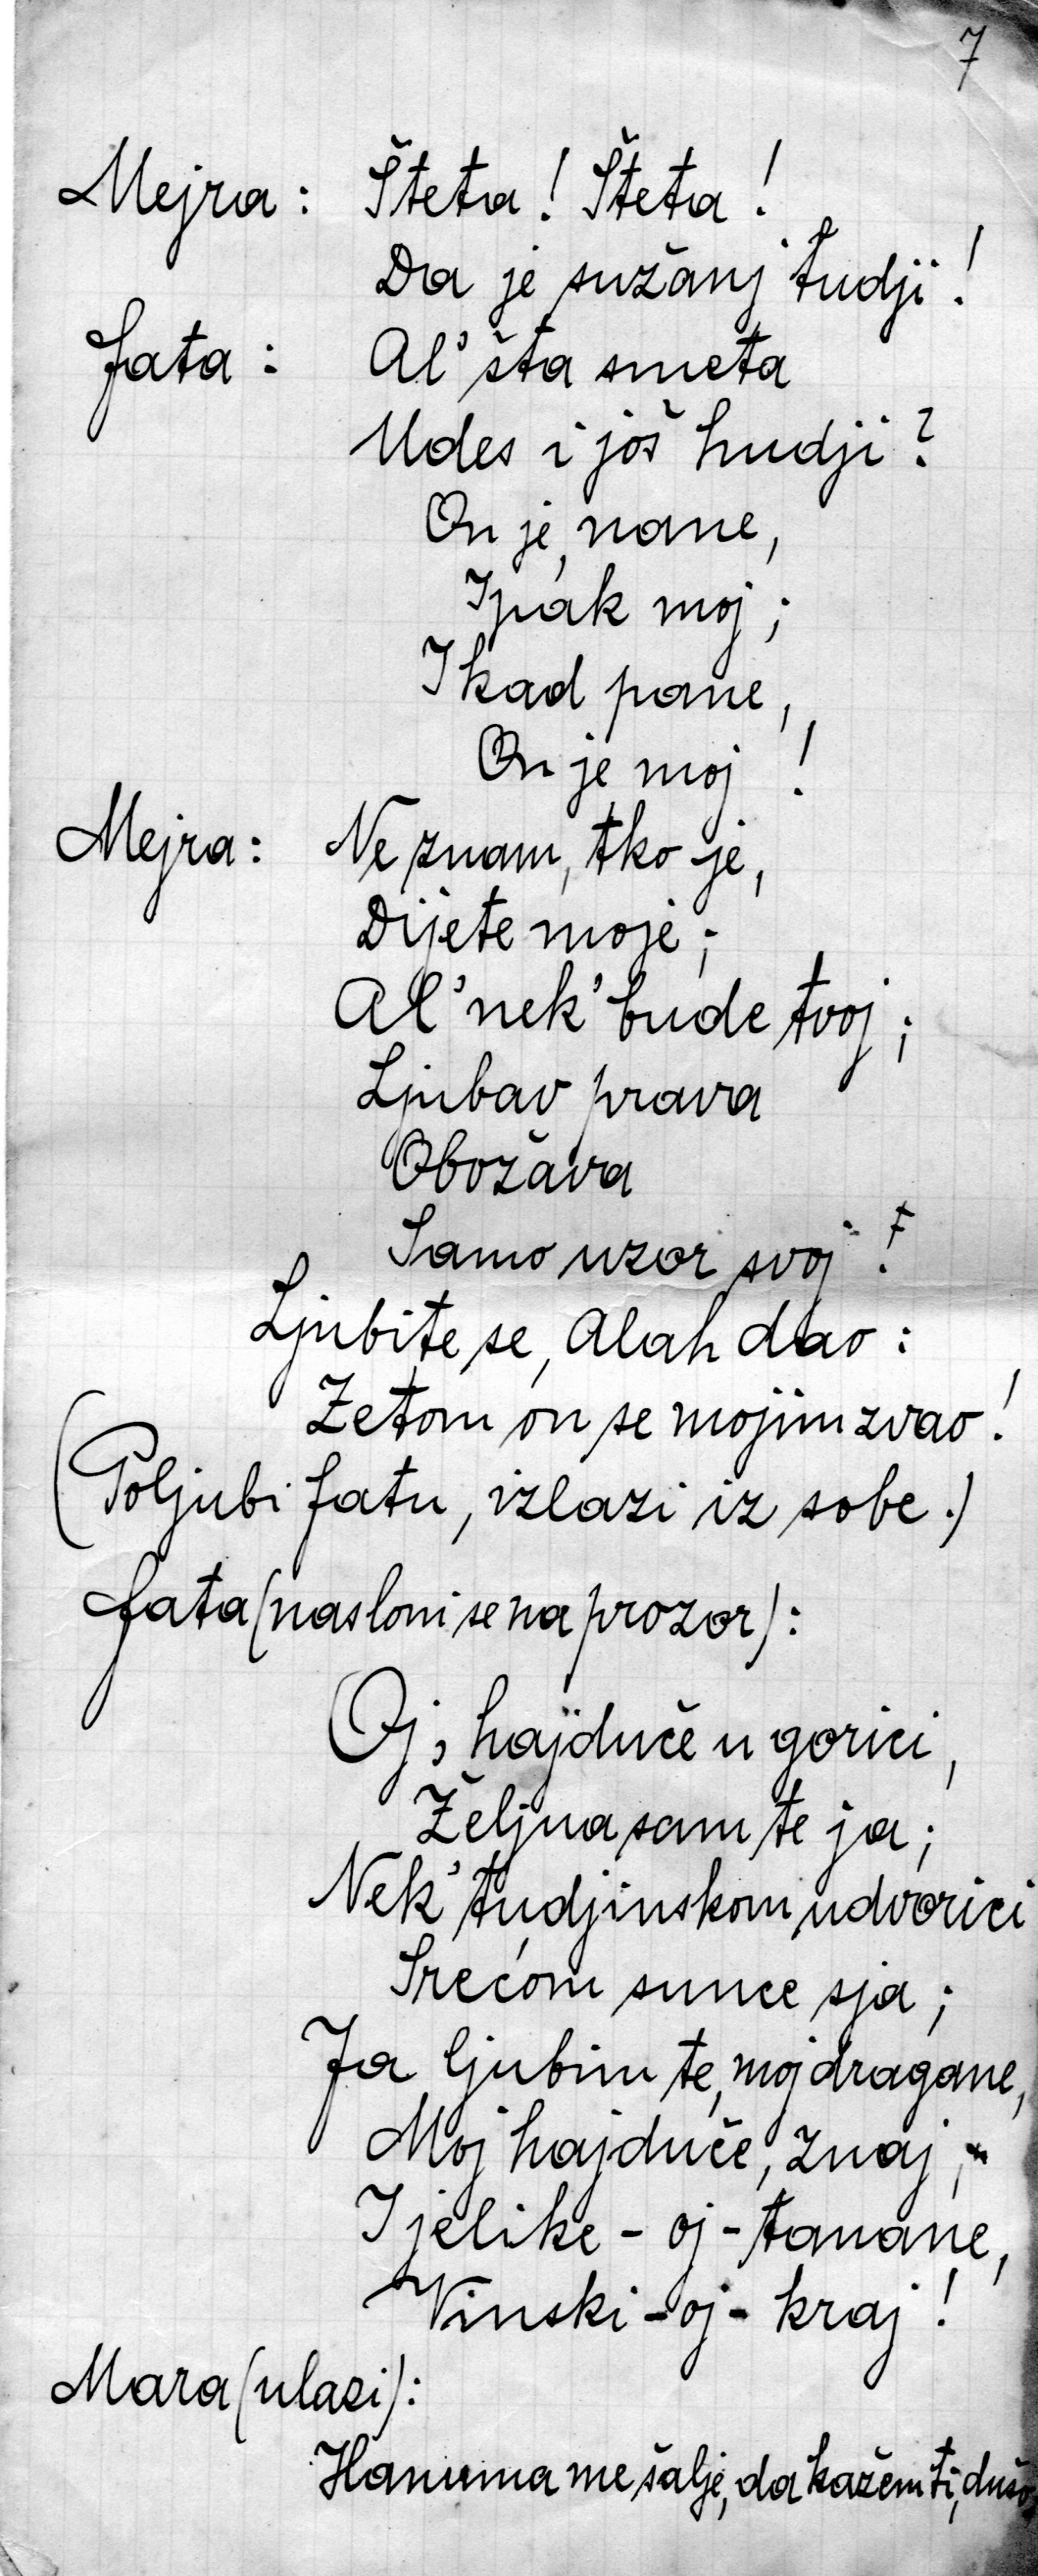 7
Mejra: Šteta! Šteta!
Da je sužanj tudji!
Fata: Al' šta smeta
Udes i još hudji?
On je, nane,
Ipak moj;
I kad pane,
On je moj!
Mejra: Ne znam, tko je,
Dijete moje;
Al' nek' bude tvoj;
Ljubav prava
Obožava
Samo uzor svoj!
Ljubite se, Alah dao:
Zetom on se mojim zvao!
(Poljubi Fatu, izlazi iz sobe.)
Fata (nasloni se na prozor):
Oj, hajduče u gorici,
Željna sam te ja;
Nek' tudjinskom u dvorici
Srećom sunce sja;
Ja ljubim te, moj dragane,
Moj hajduče, znaj,
I jelike - oj - tanane,
Vinski - oj - kraj!
Mara (ulazi):
Hanuma me šalje, da kažem ti, dušo,